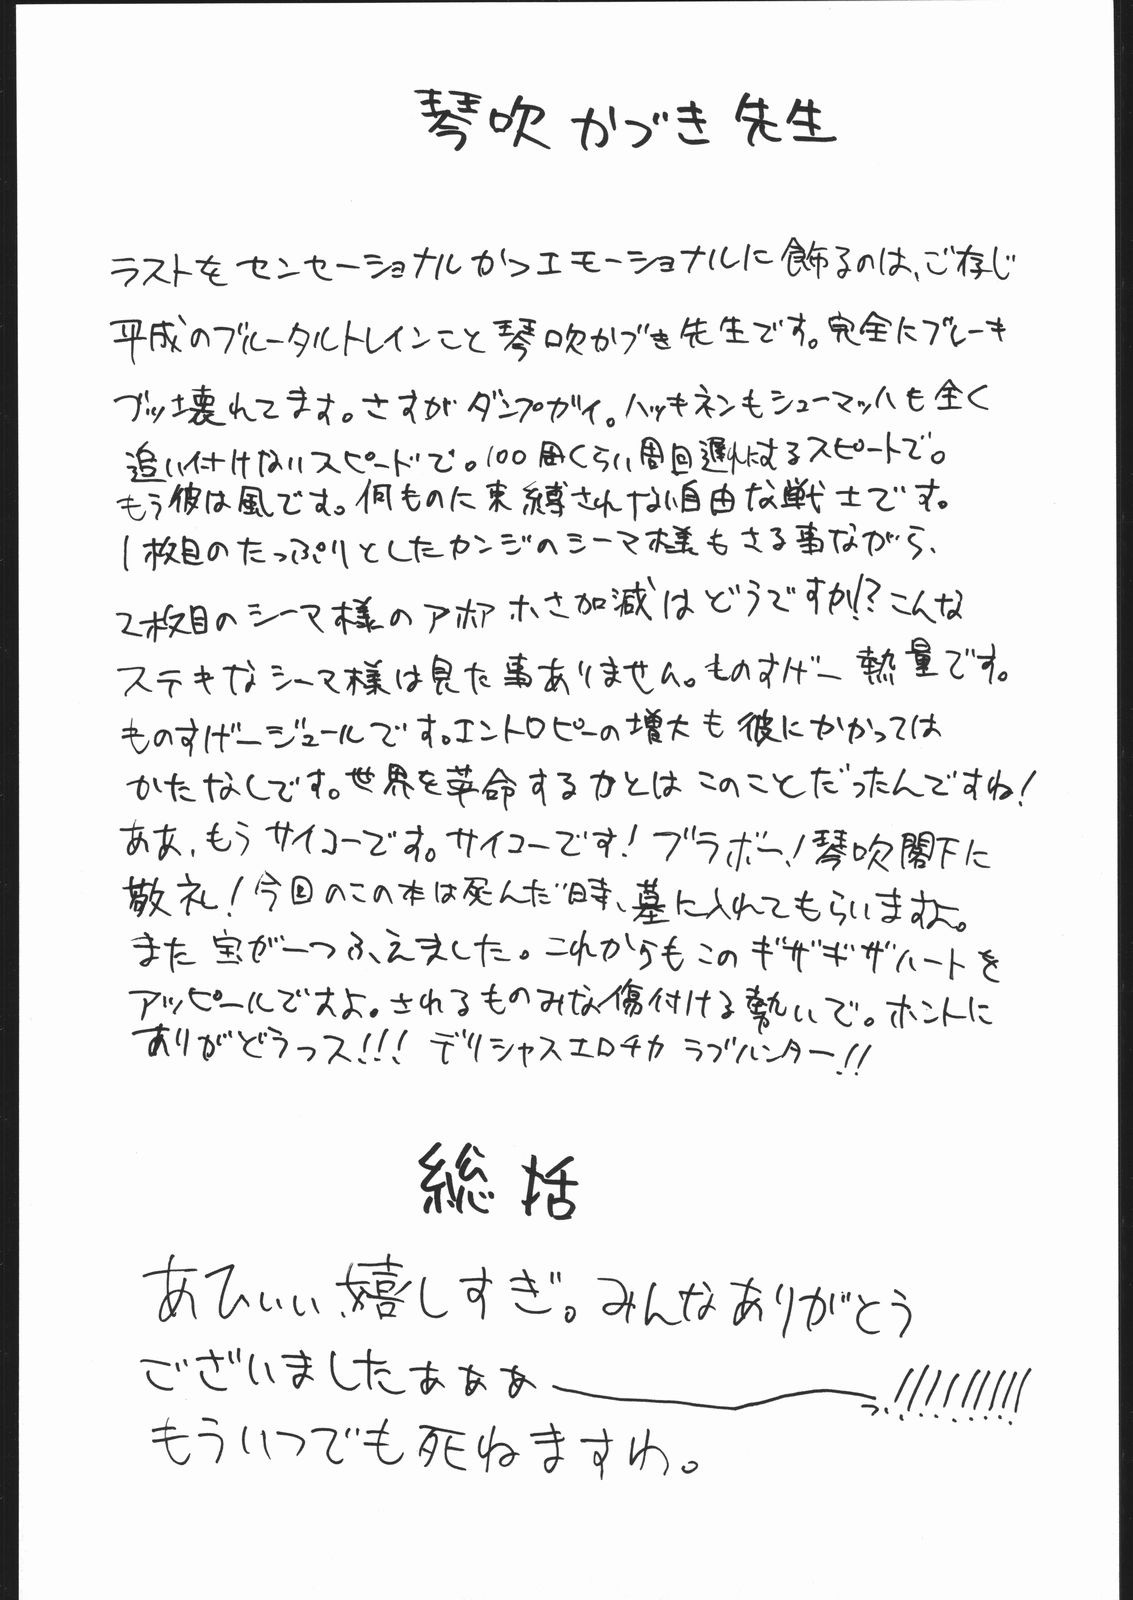 琴吹かづき先生
ラストをセンセーショナルかつエモーショナルに飾るのは、ご存じ
平成のブルータルトレインこと琴吹かづき先生です。完全にブレーキ
ブッ壊れてます。さすがダンプガイ。ハッキネンもシューマッハも全く
追い付けないスピードで。100周くらい周回遅れにするスピードで。
もう彼は風です。何ものに束縛されない自由な戦士です。
1枚目のたっぷりとしたカンジのシーマ様もさる事ながら、
2枚目のシーマ様のアホアホさ加減はどうですか!?こんな
ステキなシーマ様は見た事ありません。ものすげー熱量です。
ものすげージュールです。エントロピーの増大も彼にかかっては
かたなしです。世界を革命する力とはこのことだったんですね!
ああ、もうサイコーです。サイコーです!ブラボー!琴吹閣下に
敬礼!今回のこの本は死んだ時、墓に入れてもらいますよ。
また宝が一つふえました。これからもこのギザギザハートを
アッピールですよ。されるものみな傷付ける勢いで。ホントに
ありがどうっス!!! デリシャスエロチカラブハンター!!
総括
あひぃぃ、嬉しすぎ。みんなありがとう
ございましたぁぁぁーっ!!!!!!!!!
もういつでも死ねますわ。